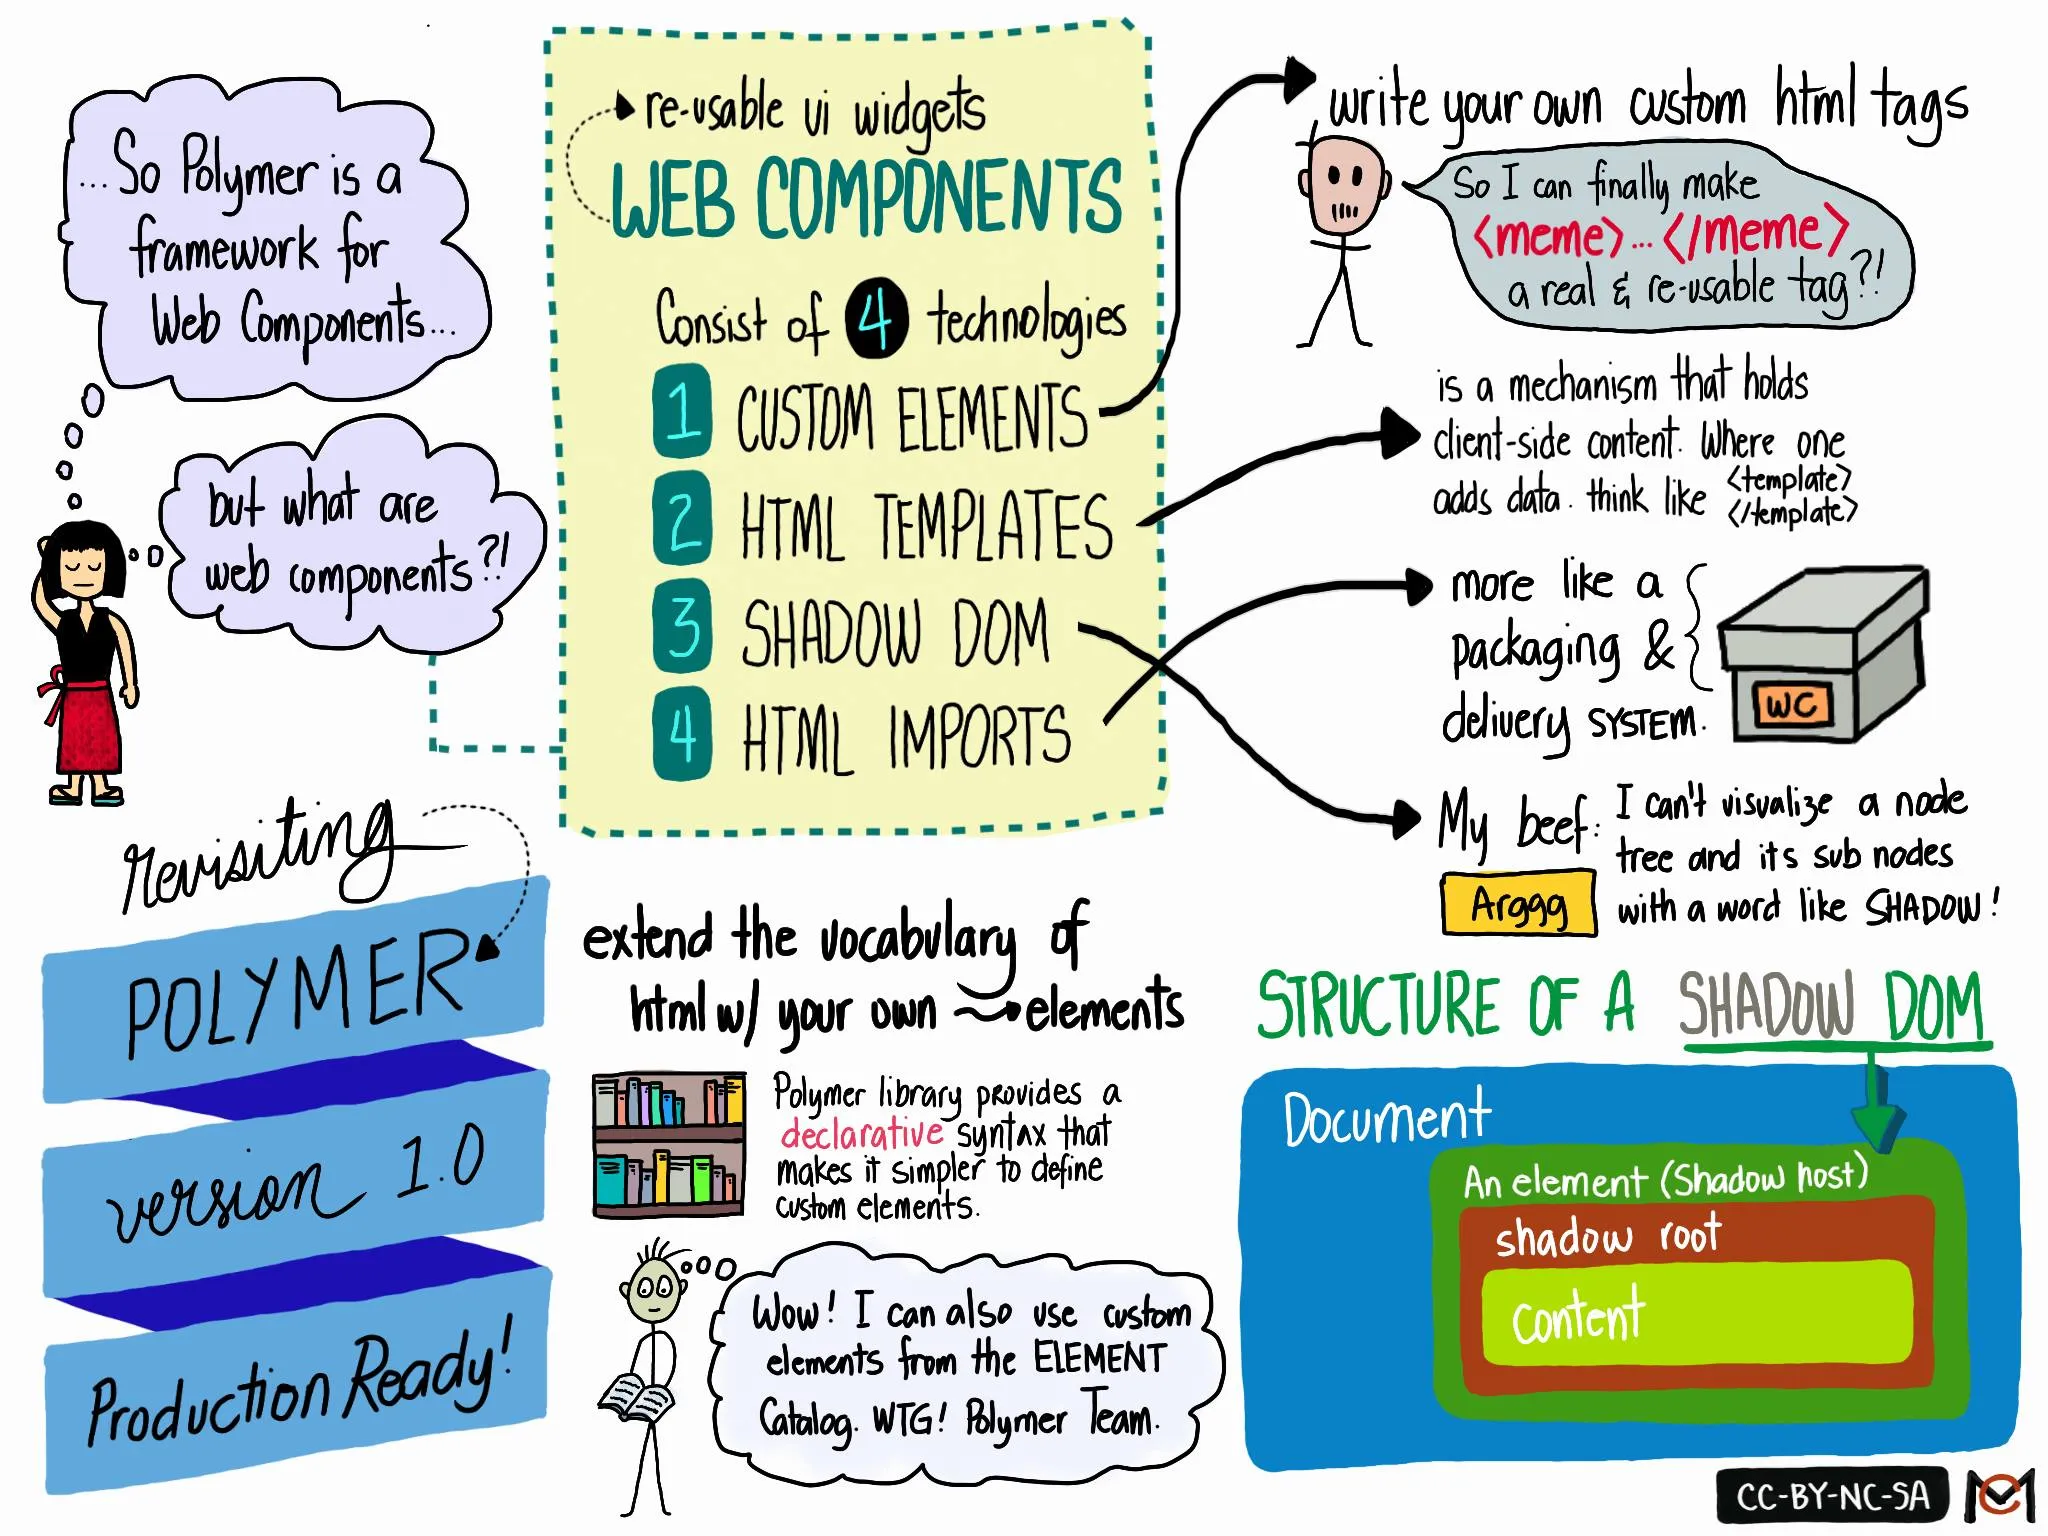 ...So Polymer is a
framework for
Web Components...
but what are
web components?!
re-usable ui widgets
WEB COMPONENTS
Consist of 4 technologies
1 CUSTOM ELEMENTS
2 HTML TEMPLATES
3 SHADOW DOM
4 HTML IMPORTS
write your own custom html tags
So I can finally make
<meme>...</meme>
a real & re-usable tag?!
is a mechanism that holds
client-side content. Where one
adds data. think like <template>
</template>
more like a
packaging &
delivery SYSTEM.
WC
My beef: I can't visualize a node
tree and its sub nodes
with a word like SHADOW!
Arggg
revisiting
POLYMER
version 1.0
Production Ready!
extend the vocabulary of
html w/ your own elements
Polymer library provides a
declarative syntax that
makes it simpler to define
custom elements.
Wow! I can also use custom
elements from the ELEMENT
Catalog. WTG! Polymer Team.
STRUCTURE OF A SHADOW DOM
Document
An element (Shadow host)
shadow root
Content
CC-BY-NC-SA